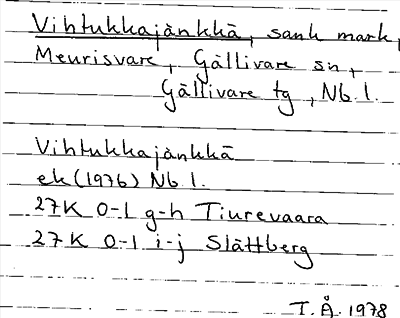 Vihtukkajänkkä, sank mark,
Meurisvare, Gällivare sn,
Gällivare tg, Nb.l.
Vihtukkajänkkä
ek (1976) Nb l.
27K 0-1 g-h Tiurevaara
27K 0-1 i-j Slättberg
T. Å. 1978